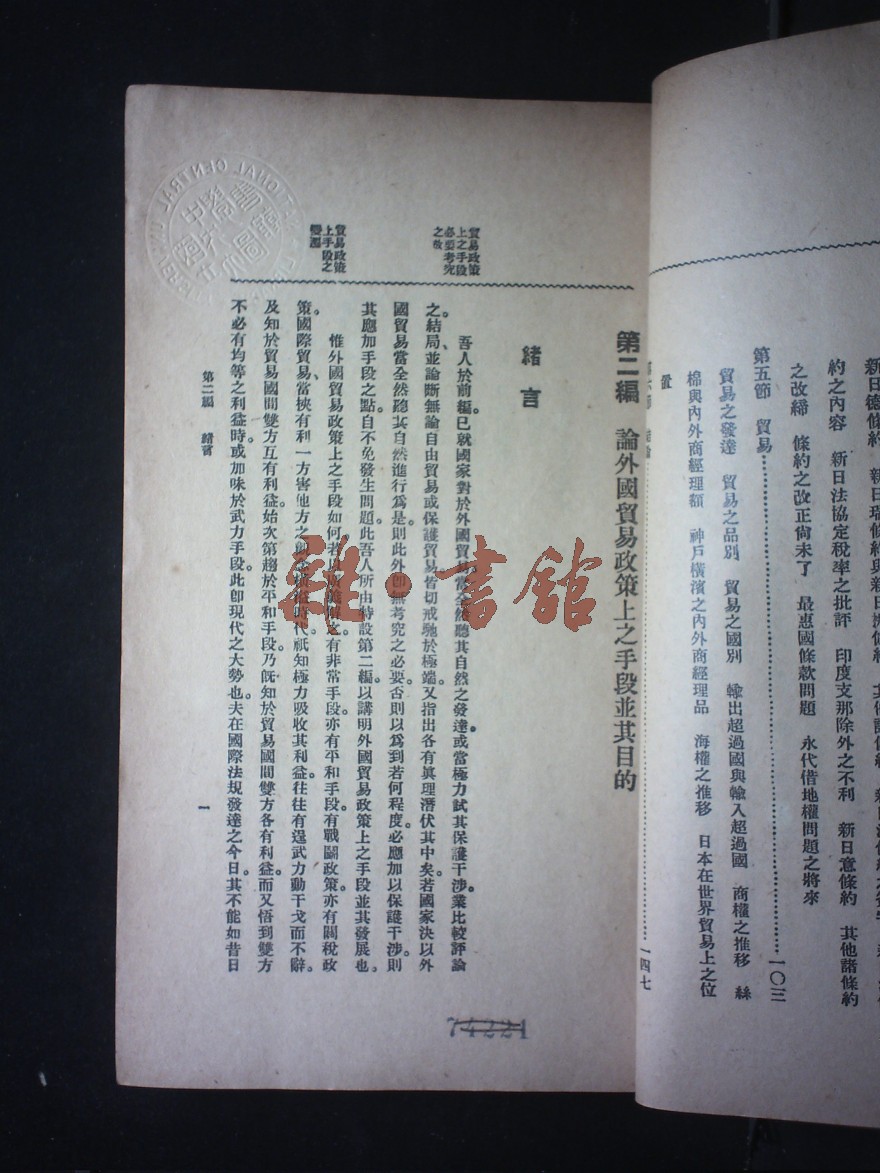 新日德條約
約之內容　新日法協定稅率之批評　印度支那除外之不利　新日意條約　其他諸條約
之改締　條約之改正尙未了　最惠國條款問題　永代借地權問題之將來
第五節　貿易……一〇三
貿易之發達　貿易之品別　貿易之國別　輸出超過國與輸入超過國　商權之推移　絲
棉與內外商經理額　神戶橫濱之內外商經理品　海權之推移　日本在世界貿易上之位
置
一四七
第二編　論外國貿易政策上之手段並其目的
緖言
貿易政策
上之手段
必要考究
之故
吾人於前編已就國家對於外國貿易當全然聽其自然之發達或當極力試其保護干涉業比較評論
之結局並論斷無論自由貿易或保護貿易皆切戒馳於極端又指出各有眞理潛伏其中矣若國家決以外
國貿易當全然聽其自然進行爲是則此外卽無考究之必要否則以爲到若何程度必應加以保護干涉則
其應加手段之點自不免發生問題此吾人所由特設第二編以講明外國貿易政策上之手段並其發展也
貿易政策
上手段之
變遷
惟外國貿易政策上之手段如何若以有非常手段亦有平和手段有戰鬪政策亦有關稅政
策國際貿易當挾有利一方害他方之時代祇知極力吸收其利益往往有逞武力動干戈而不辭
及知於貿易國間雙方互有利益始次第趨於平和手段乃旣知於貿易國間雙方各有利益而又悟到雙方
不必有均等之利益時或加味於武力手段此卽現代之大勢也夫在國際法規發達之今日其不能如昔日
第二編　緖言
一
74221
雜・書館